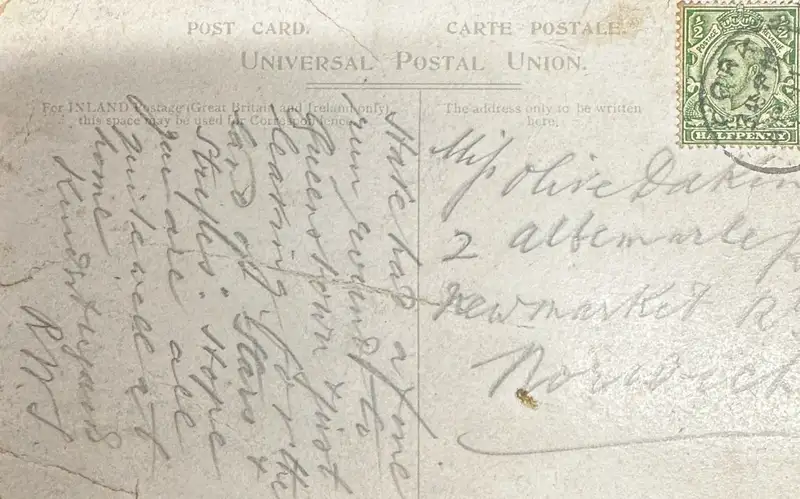 POST CARD. CARTE POSTALE.
UNIVERSAL POSTAL UNION.
½ ½
POSTAGE REVENUE
HALFPENNY
For INLAND Postage (Great Britain and Ireland only)
this space may be used for Correspondence
The address only to be written
here.
Have had a fine
run round to
Queenstown & just
leaving for the
land of Stars &
Stripes. Hope
you are all
quite well at
home
Kind
R.W.S
Miss Olive Dakin
2 Albemarle
Newmarket R
Norwich